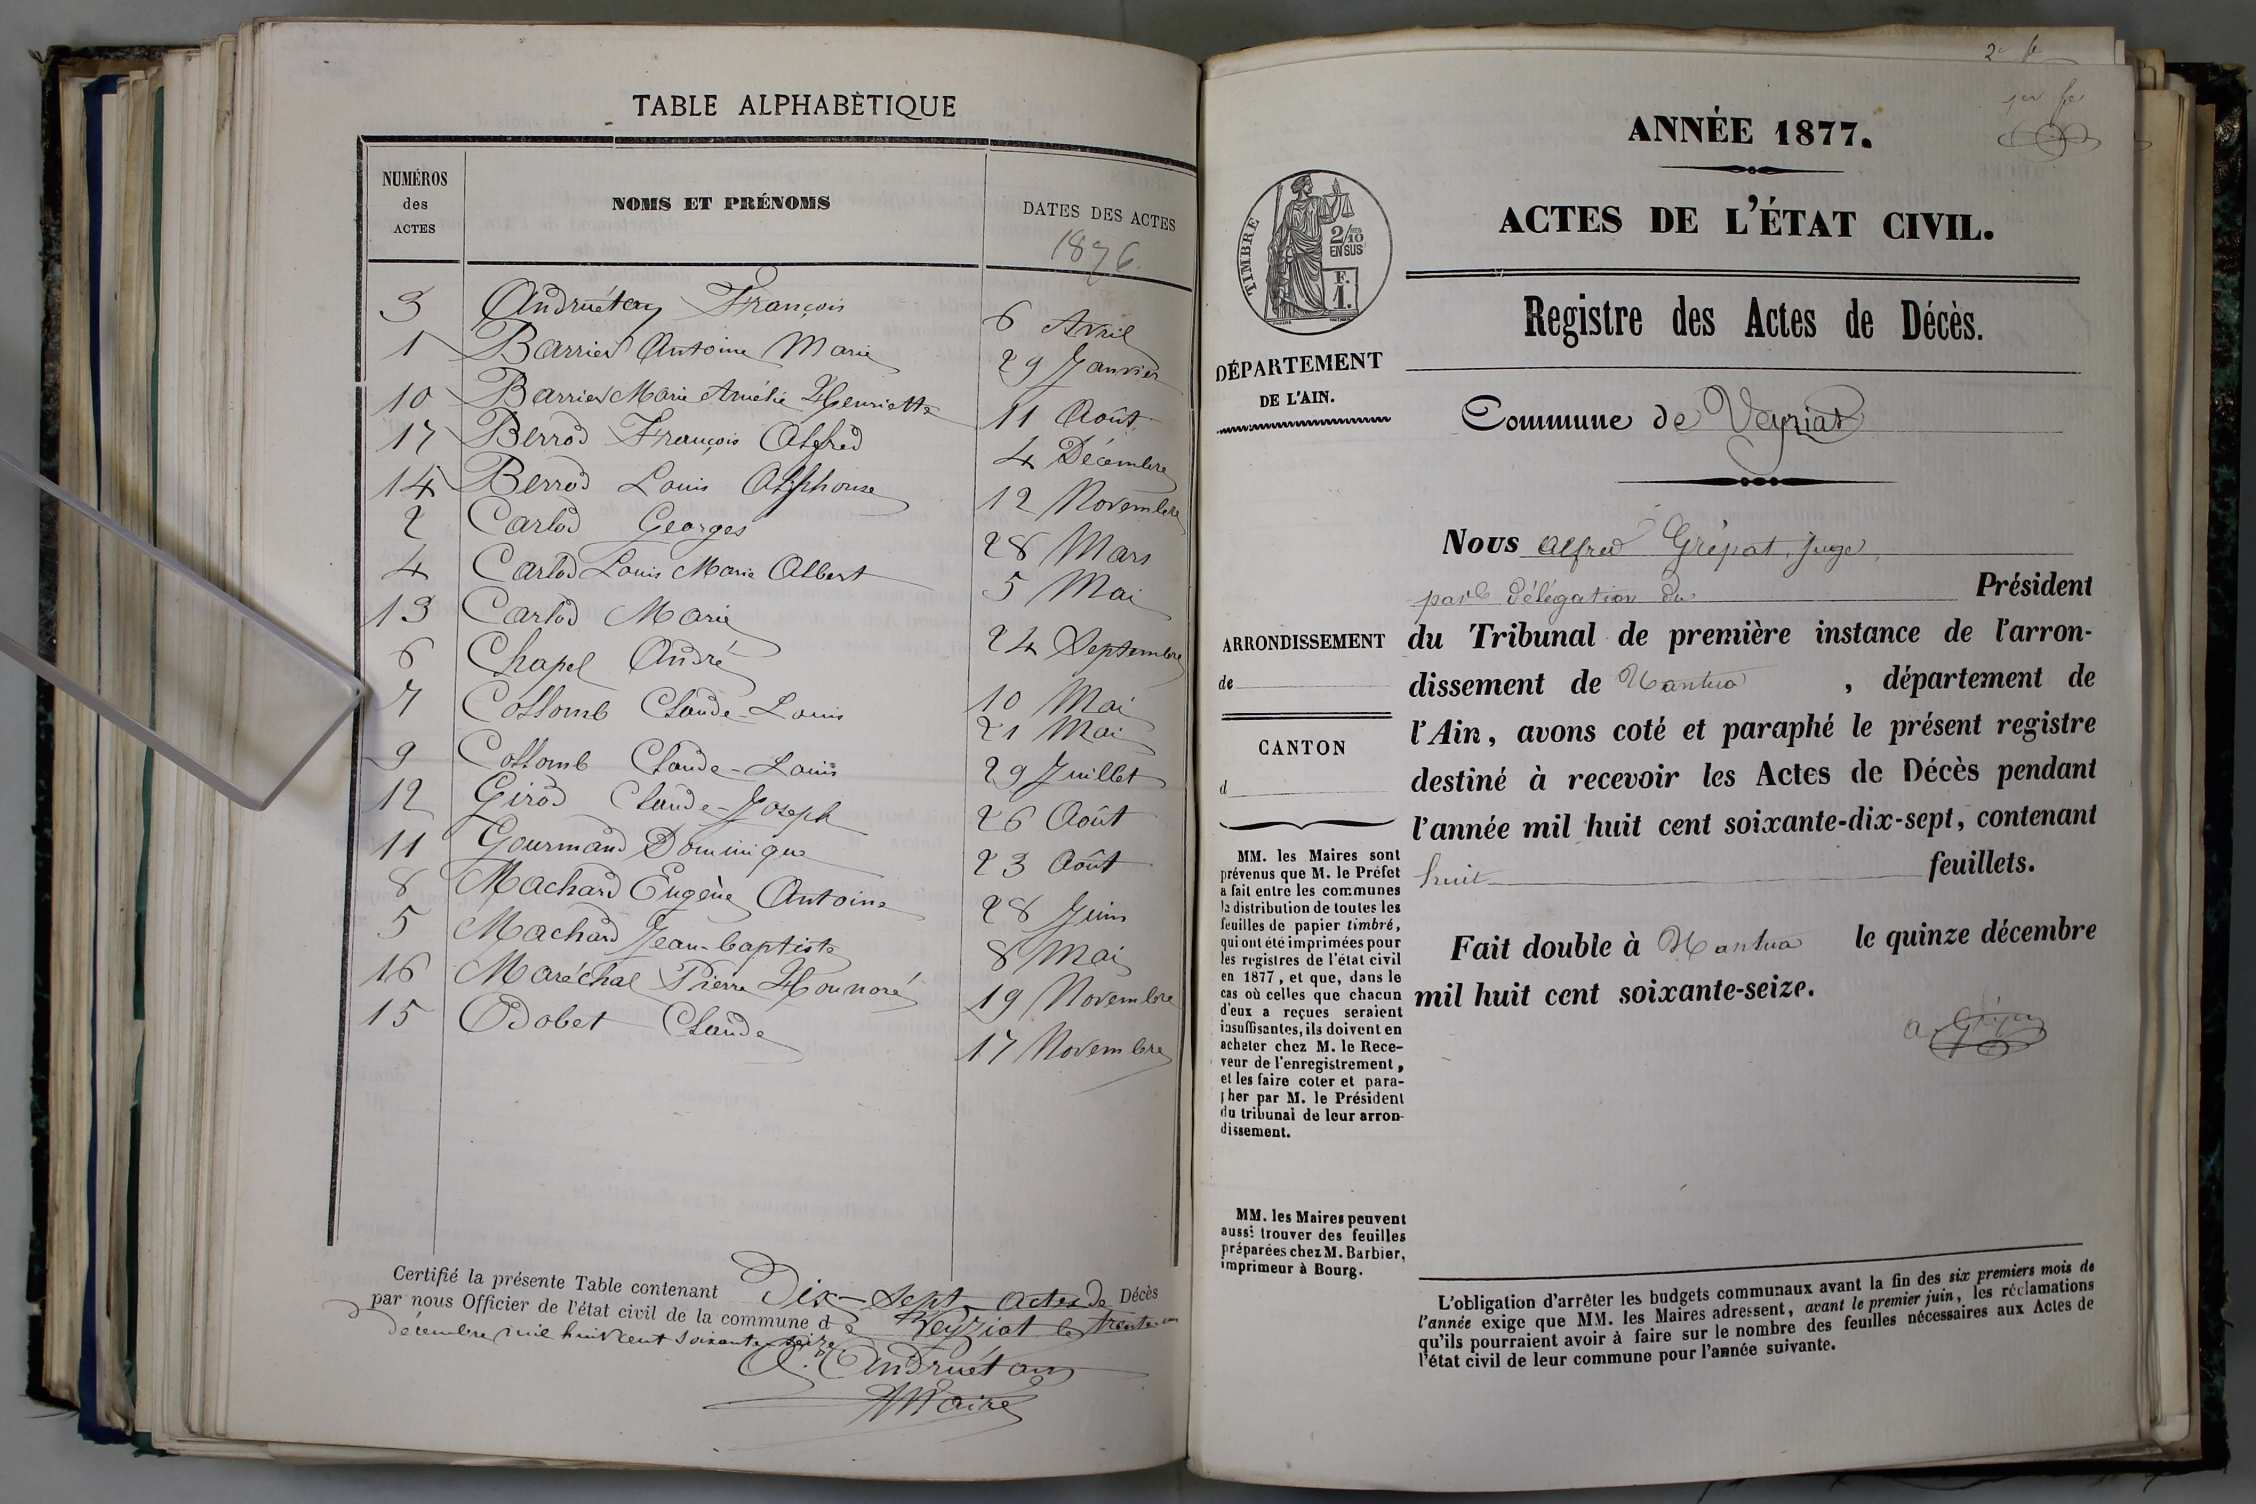 TABLE ALPHABÈTIQUE
NUMÉROS des ACTES
NOMS ET PRÉNOMS
DATES DES ACTES
1876.
3 Andruétan François 6 Avril
1 Barrier Antoine Marie 29 Janvier
10 Barrier Marie Amélie Henriette 11 Août
17 Berrod François Alfred 4 Décembre
14 Berrod Louis Alphonse 12 Novembre
2 Carlod Georges 28 Mars
4 Carlod Louis Marie Albert 5 Mai
13 Carlod Marie 24 Septembre
6 Chapel André 10 Mai
7 Collomb Claude-Louis 21 Mai
9 Collomb Claude-Louis 29 Juillet
12 Girod Claude-Joseph 26 Août
11 Gourmand Dominique 23 Août
8 Machard Eugène Antoine 28 Juin
5 Machard Jean-baptiste 8 Mai
16 Maréchal Pierre Hounoré 19 Novembre
15 Odobet Claude 17 Novembre
Certifié la présente Table contenant Dix-sept actes de Décès
par nous Officier de l'état civil de la commune de Veyziat le trente un
décembre mil huit cent soixante seize
Andruétan
Maire
1er
ANNÉE 1877.
ACTES DE L'ÉTAT CIVIL.
TIMBRE
2/10
EN SUS
F.
1.
Registre des Actes de Décès.
DÉPARTEMENT
DE L'AIN.
Commune de Veyziat
Nous Alfred Grépat, Juge,
par délégation du Président
du Tribunal de première instance de l'arron-
dissement de Nantua, département de
l'Ain, avons coté et paraphé le présent registre
destiné à recevoir les Actes de Décès pendant
l'année mil huit cent soixante-dix-sept, contenant
huit feuillets.
Fait double à Nantua le quinze décembre
mil huit cent soixante-seize.
ARRONDISSEMENT
de
CANTON
d
MM. les Maires sont
prévenus que M. le Préfet
a fait entre les communes
la distribution de toutes les
feuilles de papier timbré,
qui ont été imprimées pour
les registres de l'état civil
en 1877, et que, dans le
cas où celles que chacun
d'eux a reçues seraient
insuffisantes, ils doivent en
acheter chez M. le Rece-
veur de l'enregistrement,
et les faire coter et para-
pher par M. le Président
du tribunal de leur arron-
dissement.
MM. les Maires peuvent
aussi trouver des feuilles
préparées chez M. Barbier,
imprimeur à Bourg.
L'obligation d'arrêter les budgets communaux avant la fin des six premiers mois de
l'année exige que MM. les Maires adressent, avant le premier juin, les réclamations
qu'ils pourraient avoir à faire sur le nombre des feuilles nécessaires aux Actes de
l'état civil de leur commune pour l'année suivante.